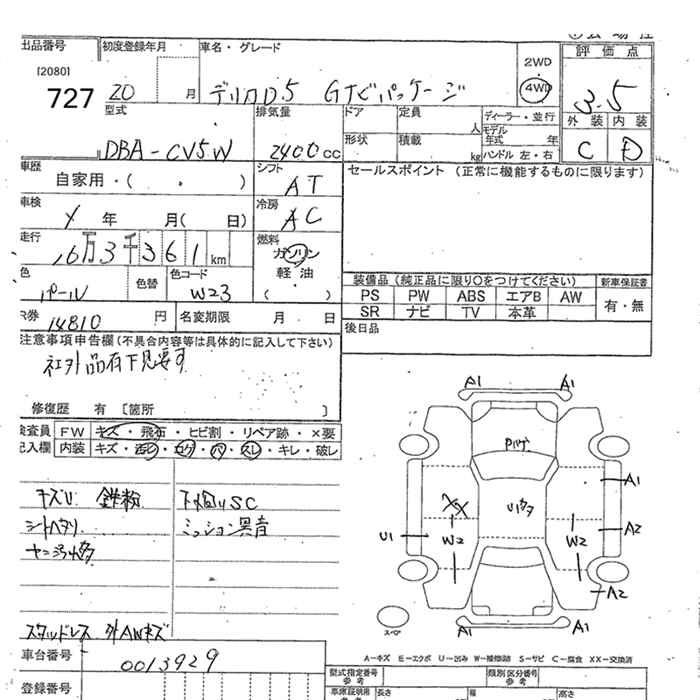 出品番号 初度登録年月 車名・グレード
[2080]
727 20 月 デリカD.5 Gナビパッケージ 2WD 4WD 評価点 3.5
型式 排気量 ドア 定員 人 ディーラー・並行 外装 内装
DBA-CV5W 2400cc 形状 積載 kg モデル年式 年 ハンドル 左・右 C D
車歴 シフト セールスポイント (正常に機能するものに限ります)
自家用・( ・ ) AT
車検 冷房
年 月( 日) AC
走行 燃料
16万3千361km ガソリン
色 色替 色コード 軽油 装備品(純正品に限り○をつけてください) 新車保証書
パール W23 ( ) PS PW ABS エアB AW 有・無
SR ナビ TV 本革
R券 14810 円 名変期限 月 日 後日品
注意事項申告欄(不具合内容等は具体的に記入して下さい)
社外品有下見要す
修復歴 有 [箇所 ]
検査員 FW キズ・飛石・ヒビ割・リペア跡・×要
記入欄 内装 キズ・汚レ・コゲ・穴・スレ・キレ・破レ
キズU 鉄粉 下廻りSC
シートヘタリ ミッション異音
スタッドレス 外AWキズ
車台番号 0013929
登録番号
A1 A1
Pハゲ
A1
XX
U1 W2 W2 A2
A2
A1 A1
スペア
A-キズ E-エクボ U-凹み W-補修跡 S-サビ C-腐食 XX-交換済
型式指定番号 参考 類別区分番号 参考
車庫証明用 参考 長さ 幅 高さ